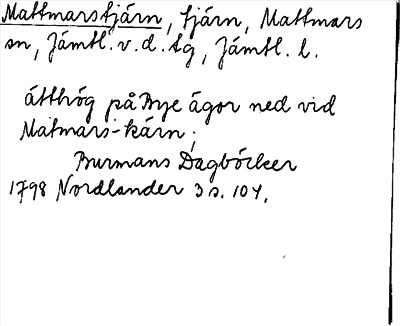 Mattmarstjärn, tjärn, Mattmars
sn, Jämtl. v. d. tg, Jämtl. l.
ätthög på Bye ägor ned vid
Matmars-kärn;
Burmans Dagböcker
1798 Nordlander 3 s. 104.